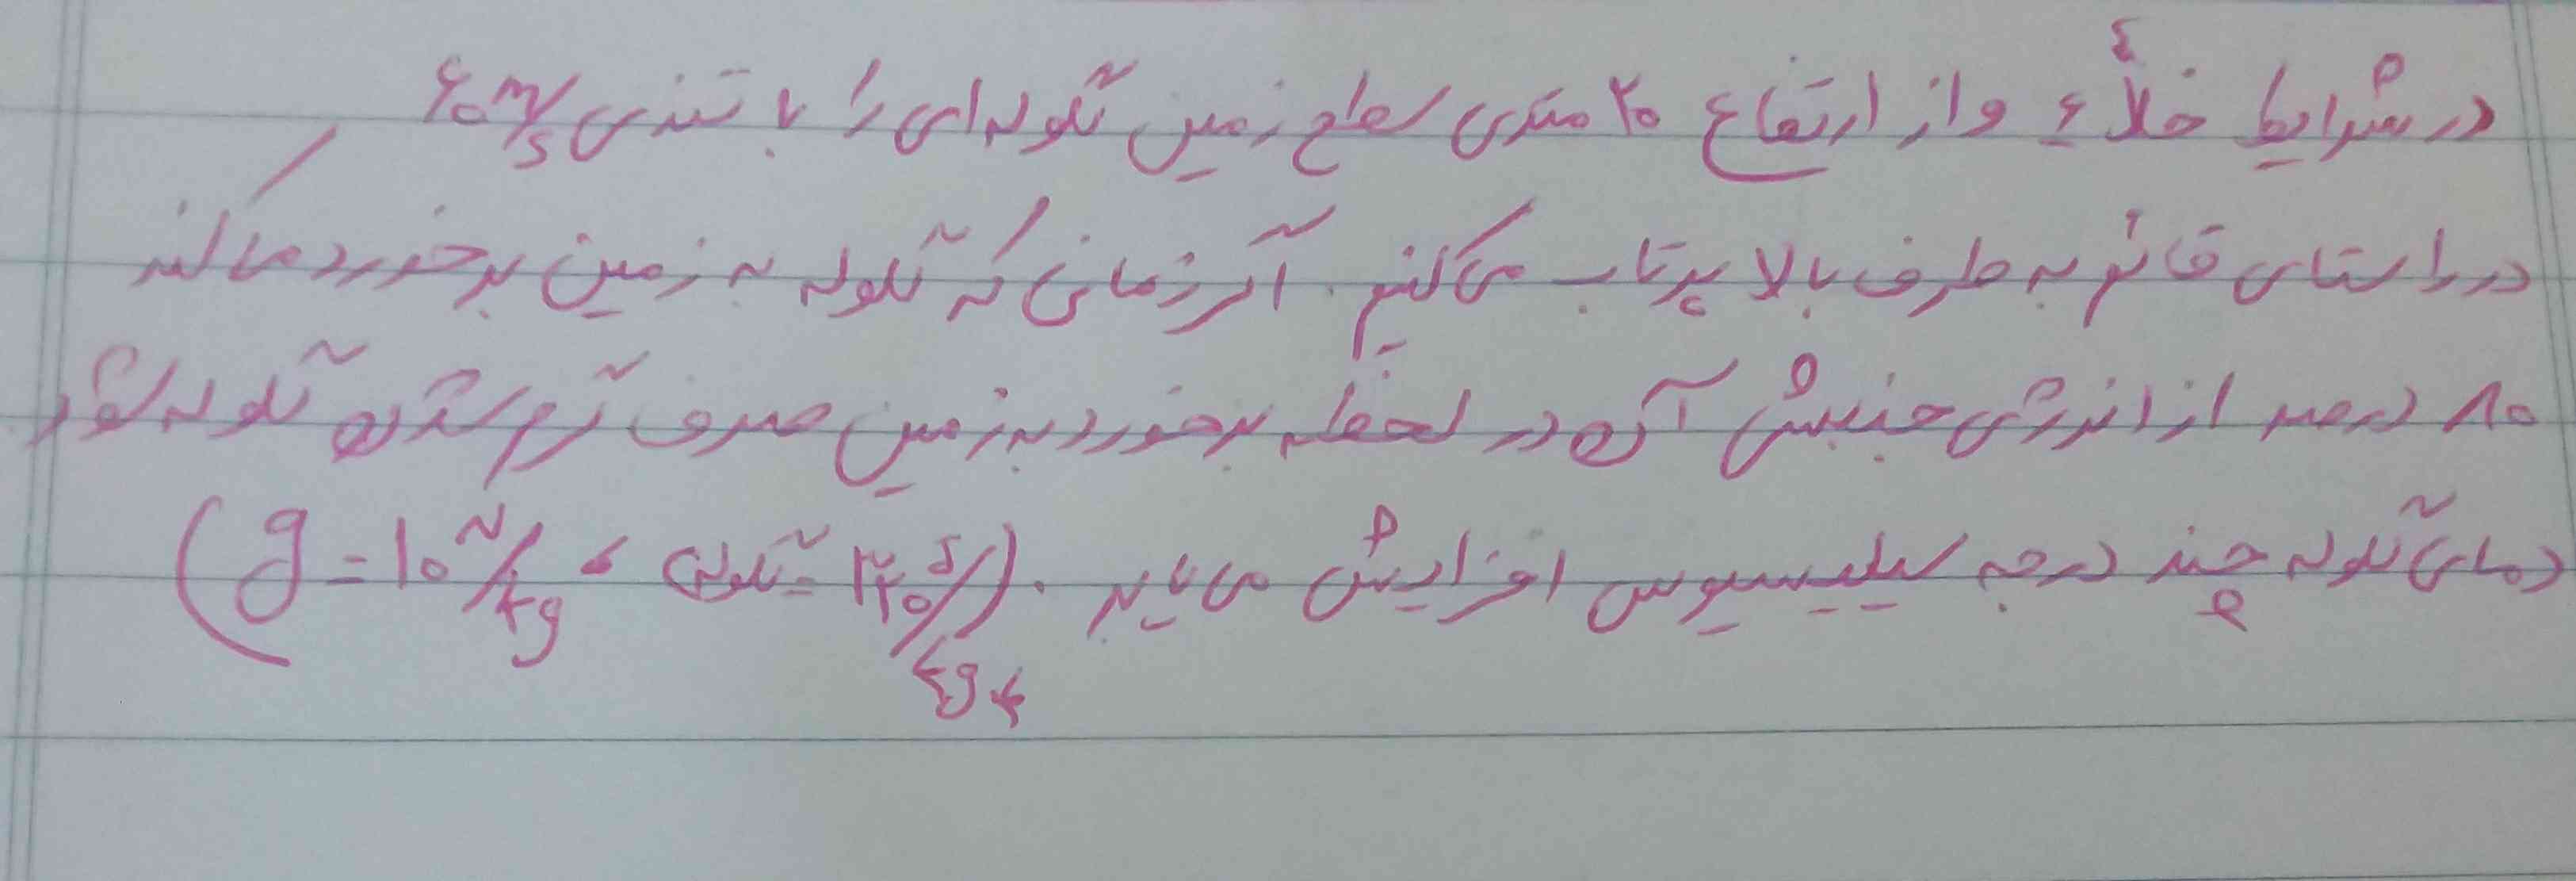 در شرایط خلأ و از ارتفاع ۲۰ متری سطح زمین گلوله‌ای را با تندی ۶۰ m/s
در راستای قائم به طرف بالا پرتاب می‌کنیم. اگر زمانی که گلوله به زمین برخورد می‌کند
۸۰ درصد از انرژی جنبشی آن در لحظه برخورد به زمین صرف گرم شدن گلوله شود
دمای گلوله چند درجه سیلیسیوس افزایش می‌یابد. (J/kg.k = گلوله c، g = ۱۰ N/kg)